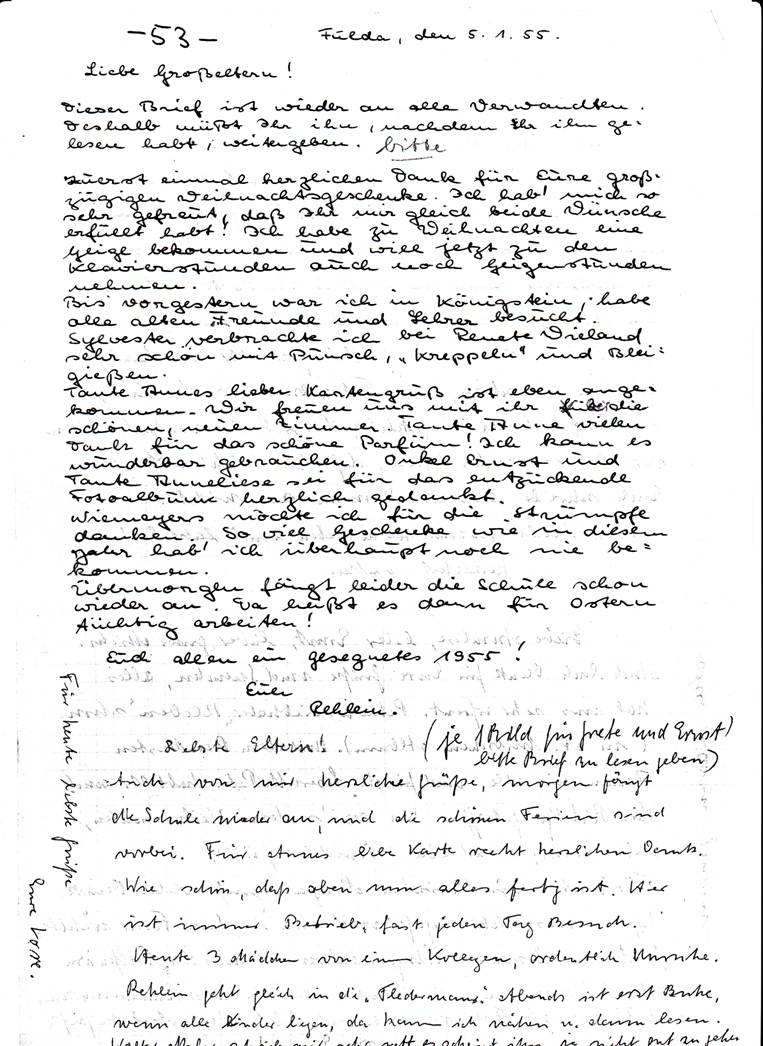 -53-
Fulda, den 5.1.55.
Liebe Großeltern!
Dieser Brief ist wieder an alle Verwandten.
Deshalb müßt Ihr ihn, nachdem Ihr ihn ge-
lesen habt, weitergeben. bitte
Zuerst einmal herzlichen Dank für Eure groß-
zügigen Weihnachtsgeschenke. Ich hab' mich so
sehr gefreut, daß Ihr mir gleich beide Wünsche
erfüllt habt! Ich habe zu Weihnachten eine
Geige bekommen und will jetzt zu den
Klavierstunden auch noch Geigenstunden
nehmen.
Bis vorgestern war ich in Königstein, habe
alle alten Freunde und Lehrer besucht.
Sylvester verbrachte ich bei Renate Wieland
sehr schön mit Punsch, „Kreppeln" und Blei-
gießen.
Tante Annes lieber Kartengruß ist eben ange-
kommen. Wir freuen uns mit ihr über die
schönen, neuen Zimmer. Tante Anne vielen
Dank für das schöne Parfüm! Ich kann es
wunderbar gebrauchen. Onkel Ernst und
Tante Anneliese sei für das entzückende
Fotoalbum herzlich gedankt.
Wiemeyers möchte ich für die Strümpfe
danken. So viel Geschenke wie in diesem
Jahr hab' ich überhaupt noch nie be=
kommen.
Übermorgen fängt leider die Schule schon
wieder an. Da heißt es dann für Ostern
tüchtig arbeiten!
Euch allen ein gesegnetes 1955!
Euer
Rehlein.
(je 1 Bild für Grete und Ernst)
bitte Brief zu lesen geben)
Liebste Eltern!
Auch von mir herzliche Grüße, morgen fängt
die Schule wieder an, und die schönen Ferien sind
vorbei. Für Annes liebe Karte recht herzlichen Dank.
Wie schön, daß oben nun alles fertig ist. Hier
ist immer Betrieb, fast jeden Tag Besuch.
Heute 3 Mädchen von einem Kollegen, ordentlich Unruhe.
Rehlein geht gleich in die „Fledermaus". Abends ist erst Ruhe,
wenn alle Kinder liegen, da kann ich nähen u. dann lesen.
Für heute liebste Grüße
Eure Lore.